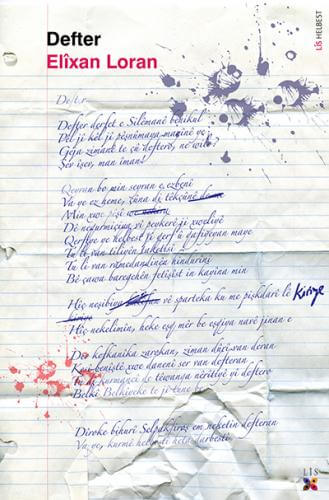 Defter
Elîxan Loran
LîS HELBEST
Defter
Defter derfet e Silêmanê bênikul
Pel jî kêl ji pêşnûmaya maninê ye
Geja zimanê te çû defterê, ne wilo?
Şêv îşev, man îman!
Qeyran bo min seyran e ezbenî
Va ye ez heme, xûna di têkçûnê
Min xwe pişî we
Dê negurmiçina vî peykerê ji xweliyê
Qertiye ye helbest ji derf û qafiyeyan maye
Tu tê van tiliyên
Tu li van ramedandinên hindurînî
Bê çawa baregehên fetisîst in kayina min
Hîç nesîbiya vê sparteka ku me pişkdarî lê Kiriye
Hîç nekelimin, heke eşq mêr be eşqiya navê jinan e
Der kefkanika zarokan, ziman dijî van deran
Kuî benîştê xwe daneni ser van defteran
kurmancî de têwanga nêrîtiyê vî defterê
Belkî Belkiyeke te jî tune be
Dîroka bihurî Selpakfiroş em neketin defteran
Va ye, kurmê helbestê heta darbestê
LîS